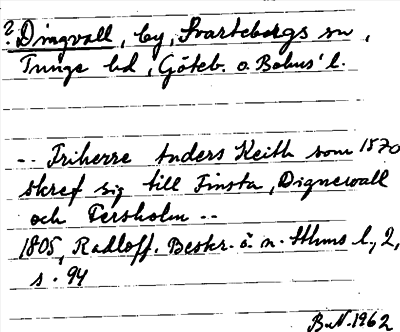 ? Dingvall, by, Svarteborgs sn,
Tunge hd, Göteb. o Bohus' l.
-- Friherre Anders Keith som 1570
skref sig till Finsta, Dignewall
och Fersholm --
1805, Radloff. Beskr. ö. n. Sthms l., 2,
s. 94
B.N. 1962